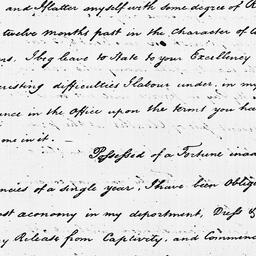 and I flatter myself with some degree of
twelve months past in the Character of
I beg leave to State to your Excellency
difficulties I labour under, in my
in the Office upon the terms you ha
me in it.
Possessed of a Fortune inad
of a single year, I have been Oblig
aconomy in my deportment, Dress &
Release from Captivity, and Commenc